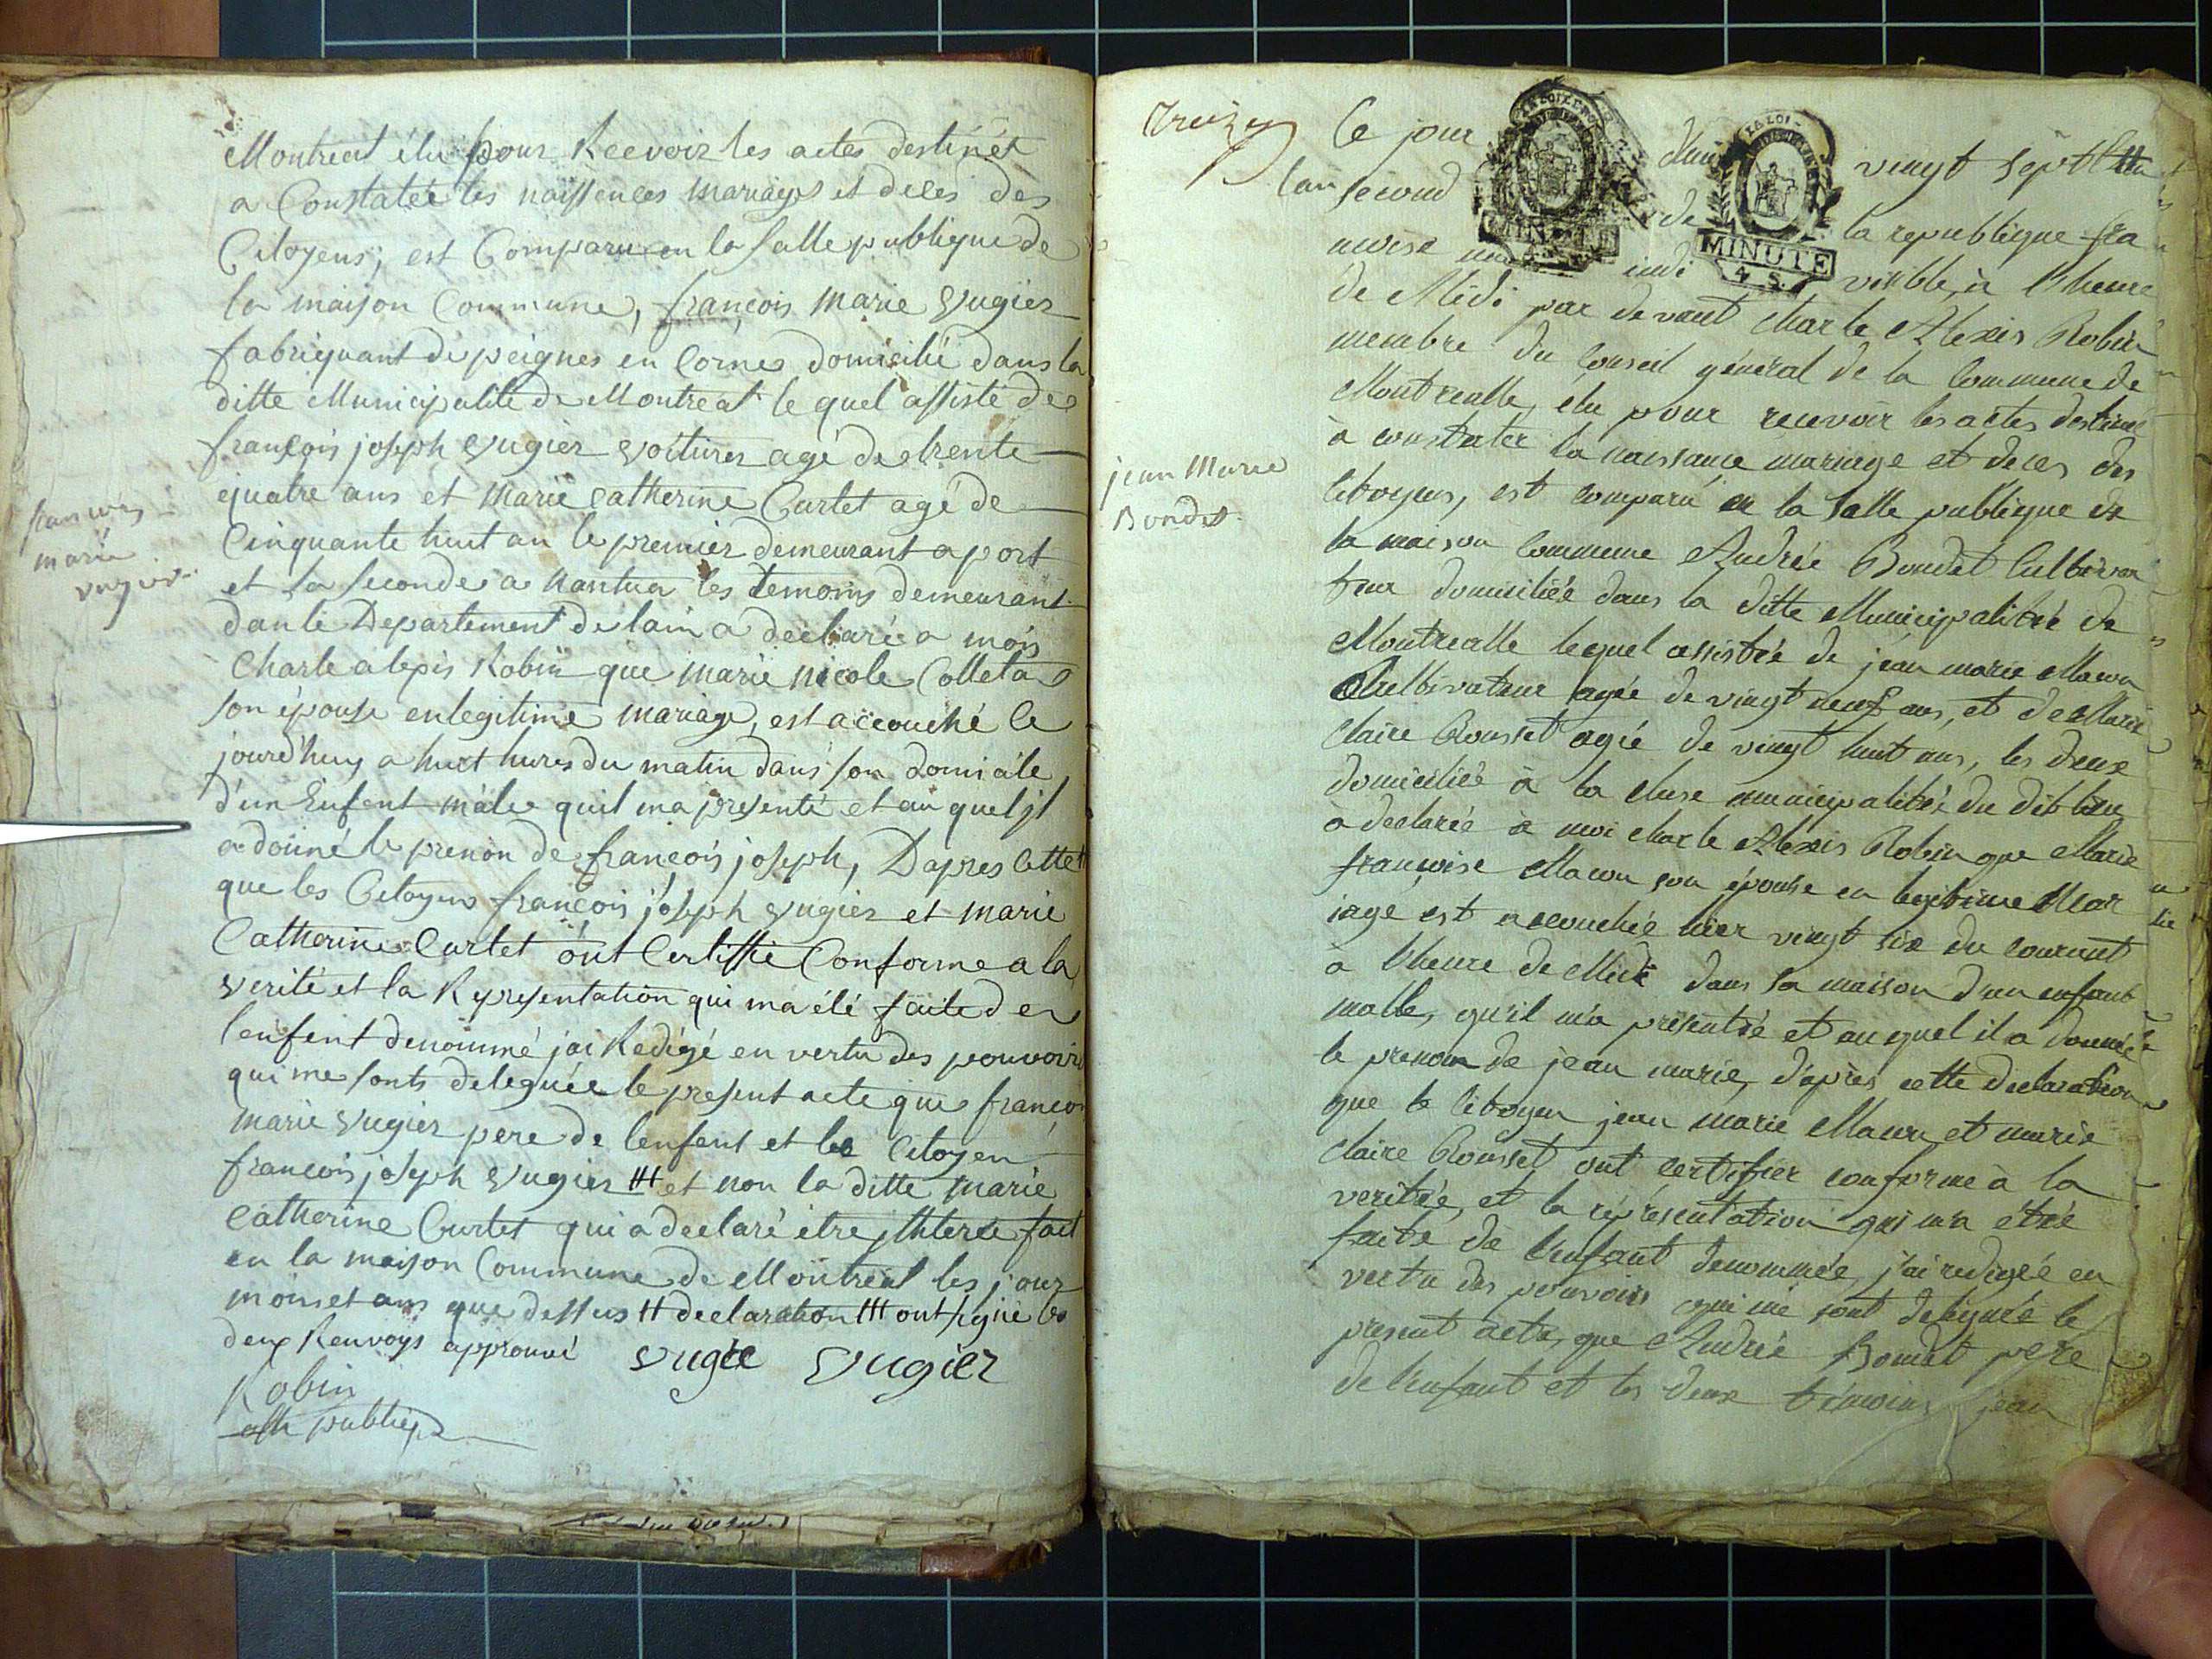 Montreal élu pour Recevoir les actes destinét
a Constatée les naissences mariages et deces des
Citoyens, est Comparu en la Salle publique de
la maison Commune, françois Marie Vugier
fabriquant de peignes en Corne domicilié dans la
ditte Municipalité de Montreal le quel assisté de
françois joseph Vugier Voiturier agé de trente
quatre ans et Marie Catherine Curtet agé de
francois
marie
vugier
Cinquante huit an le premier demeurant a port
et la Seconde a Nantua les temoins demeurant
dans le Departement de lain a declarée a mois
Charle alepis Robin que marie nicole Colleta
son épouse enlegitime mariage, est accouché le
jourd'huy a huit hures du matin dans son domicile
d'un Enfent mâle quil ma presenté et au quel jl
a donné le prenon de françois joseph, Dapres cette
que les Citoyens françois joseph Vugier et marie
Catherine Curtet ont Certiffié Conforme a la
verité et la Representation qui ma été faite de
lenfent denommé jai Redigé en vertu des pouvoirs
qui me sonts deleguée le present acte que françois
marie Vugier pere de lenfent et le Citoyen
francois joseph Vugier ## et non la ditte marie
Catherine Curtet qui a declaré etre jllterée fait
en la maison Commune de Montreal les jour
mois et ans que dessus # declaration ## ont signé les
deux Renvoys approuvé Vugée Vugier
Robin
off publiq
treize
Ce jour vingt sept
lan second de la republique fra
une indi visible, à l'heure
de Midi par devant Charle Alexis Robin
membre du Conseil général de la Commune de
Montrealle, élu pour recevoir les actes destiné
à constater la naissance mariage et deces des
jean Marie
Bondet
Citoyens, est comparu en la Salle publique de
la maison Commune Andrée Bondet Cultiva
teur domiciliée dans la ditte Municipalitée de
Montrealle lequel assistée de jean marie Macon
Cultivateur agée de vingt neuf ans, et de Marie
Claire Rousset agée de vingt huit ans, les deux
domiciliée à la cluse municipalitée du dit lieu
à declarée à moi Charle Alexis Robin que Marie
françoise Macon son épouse en legitime Mar
iage est accouchée hier vingt six du courant
a l'heure de Midi dans sa maison d'un enfant
malle, qu'il m'a présentée et au quel il a donnée
le prenom de jean marie, d'après cette declaration
que le Citoyen jean marie Macon et marie
Claire Rousset ont certifier conforme à la
veritée, et la réprésentation qui m'a étée
faite de l'enfant denommée, j'ai redigée en
vertu des pouvoirs qui me sont deleguée le
present acte, que Andrée Bondet pere
de l'enfant et les deux témoins jean
LA LOI
MINUTE
4 S.